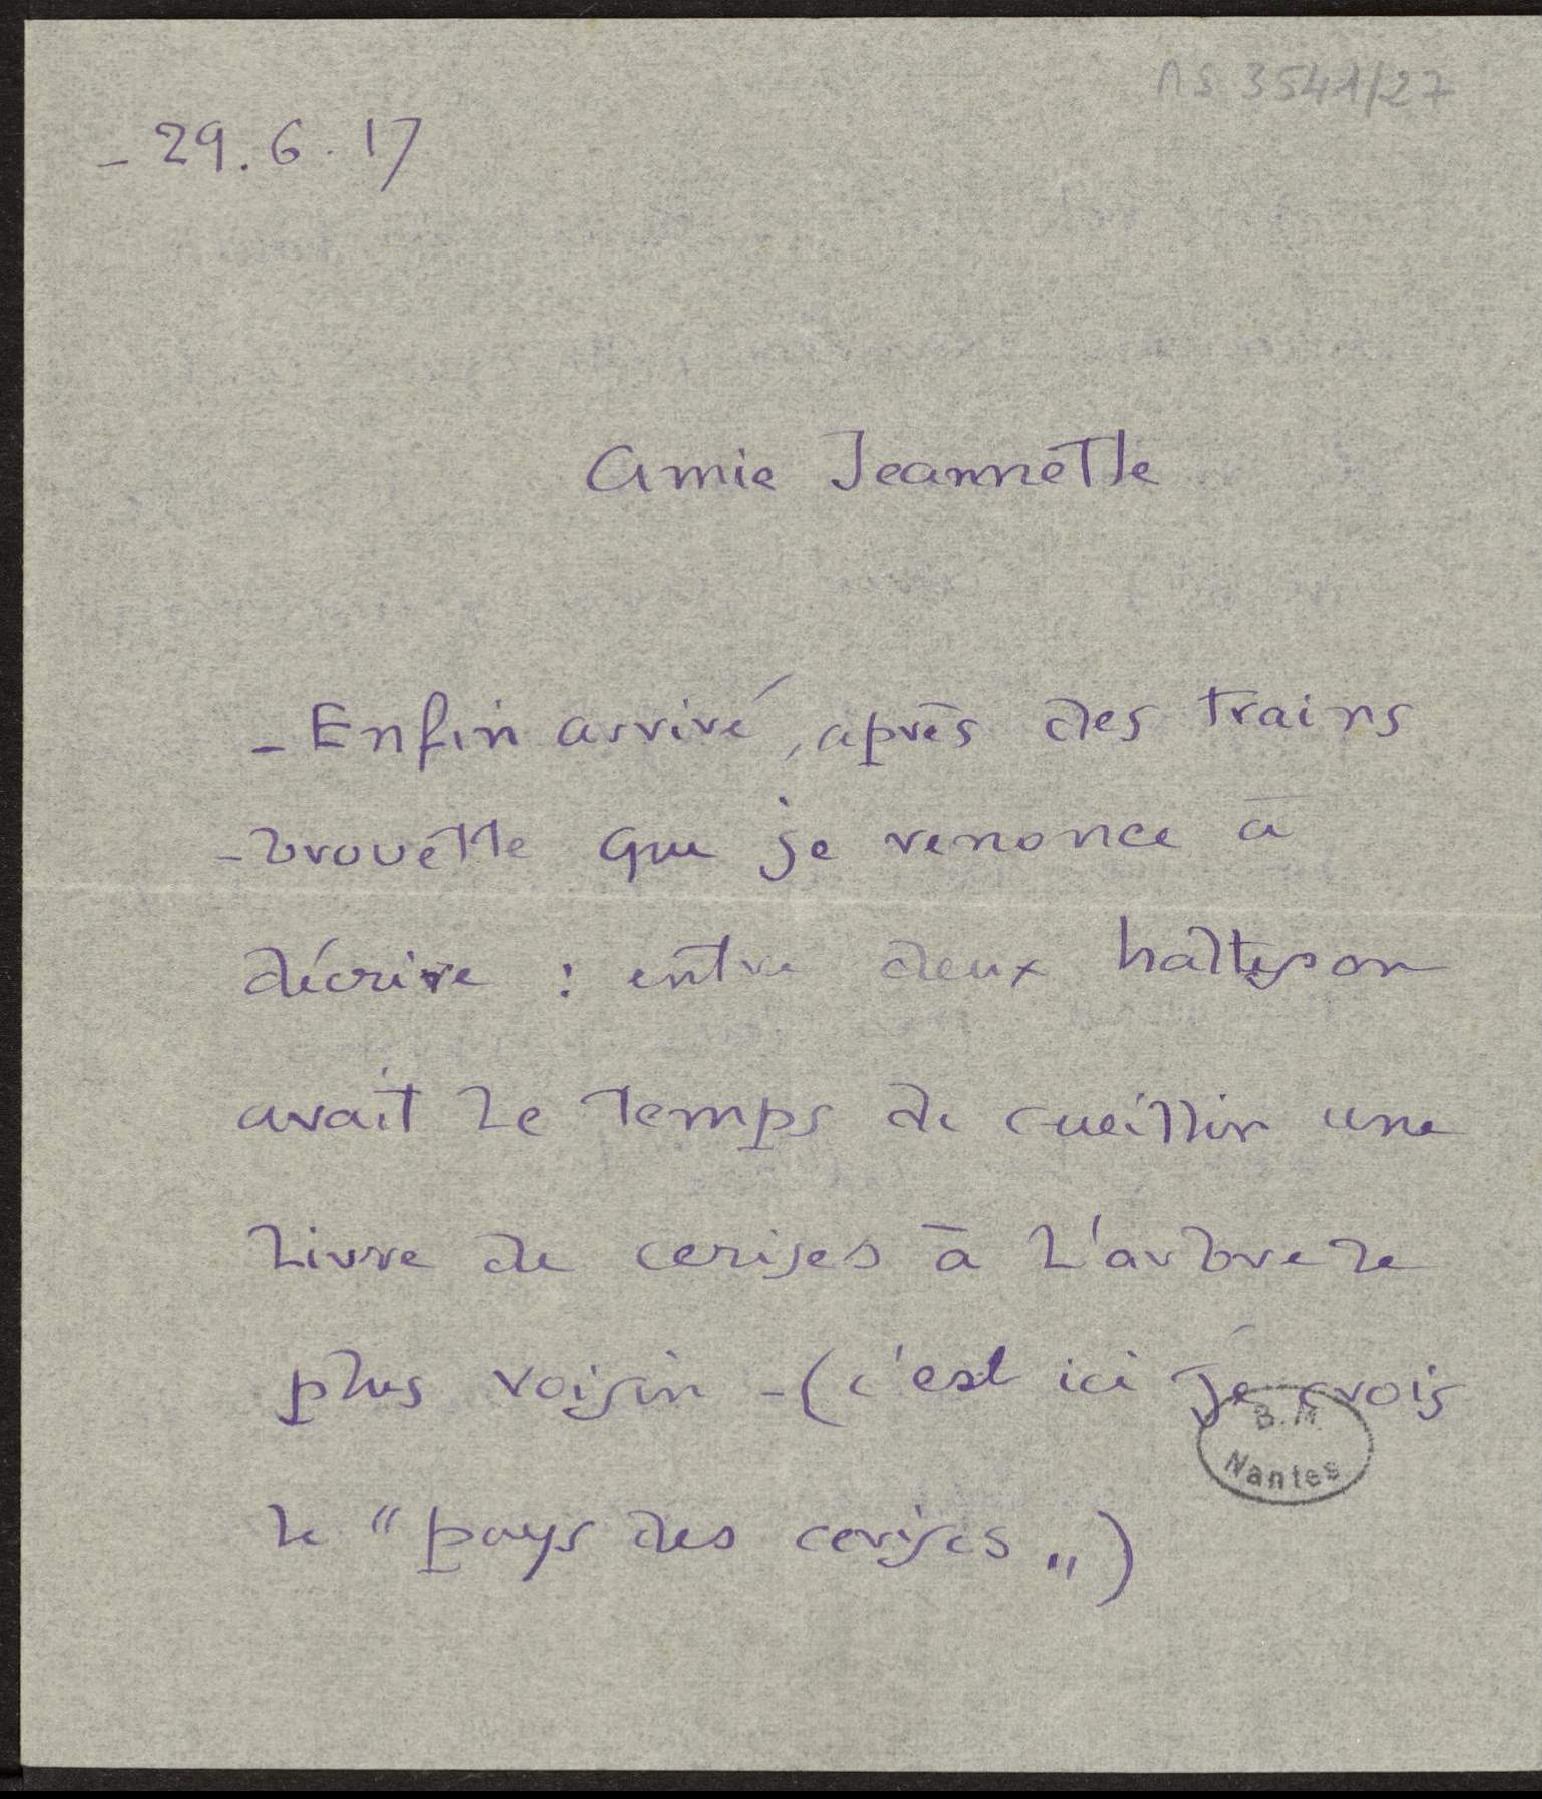 MS 3541/27
- 29. 6. 17
Amie Jeannette
- Enfin arrivé, après des trains
-brouette que je renonce à
décrire : entre deux haltes on
avait le temps de cueillir une
livre de cerises à l'arbre le
plus voisin - (c'est ici je crois
le "pays des cerises")
B. M.
Nantes